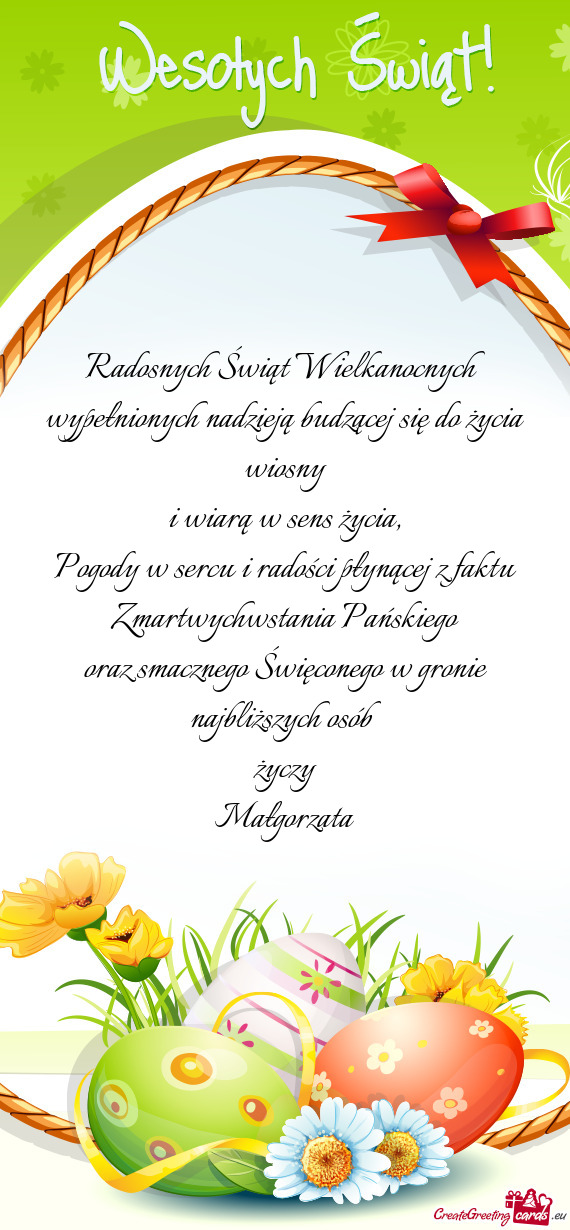 Wesołych Świąt!
Radosnych Świąt Wielkanocnych
wypełnionych nadzieją budzącej się do życia
wiosny
i wiarą w sens życia,
Pogody w sercu i radości płynącej z faktu
Zmartwychwstania Pańskiego
oraz smacznego Święconego w gronie
najbliższych osób
życzy
Małgorzata
CreateGreetingcards.eu